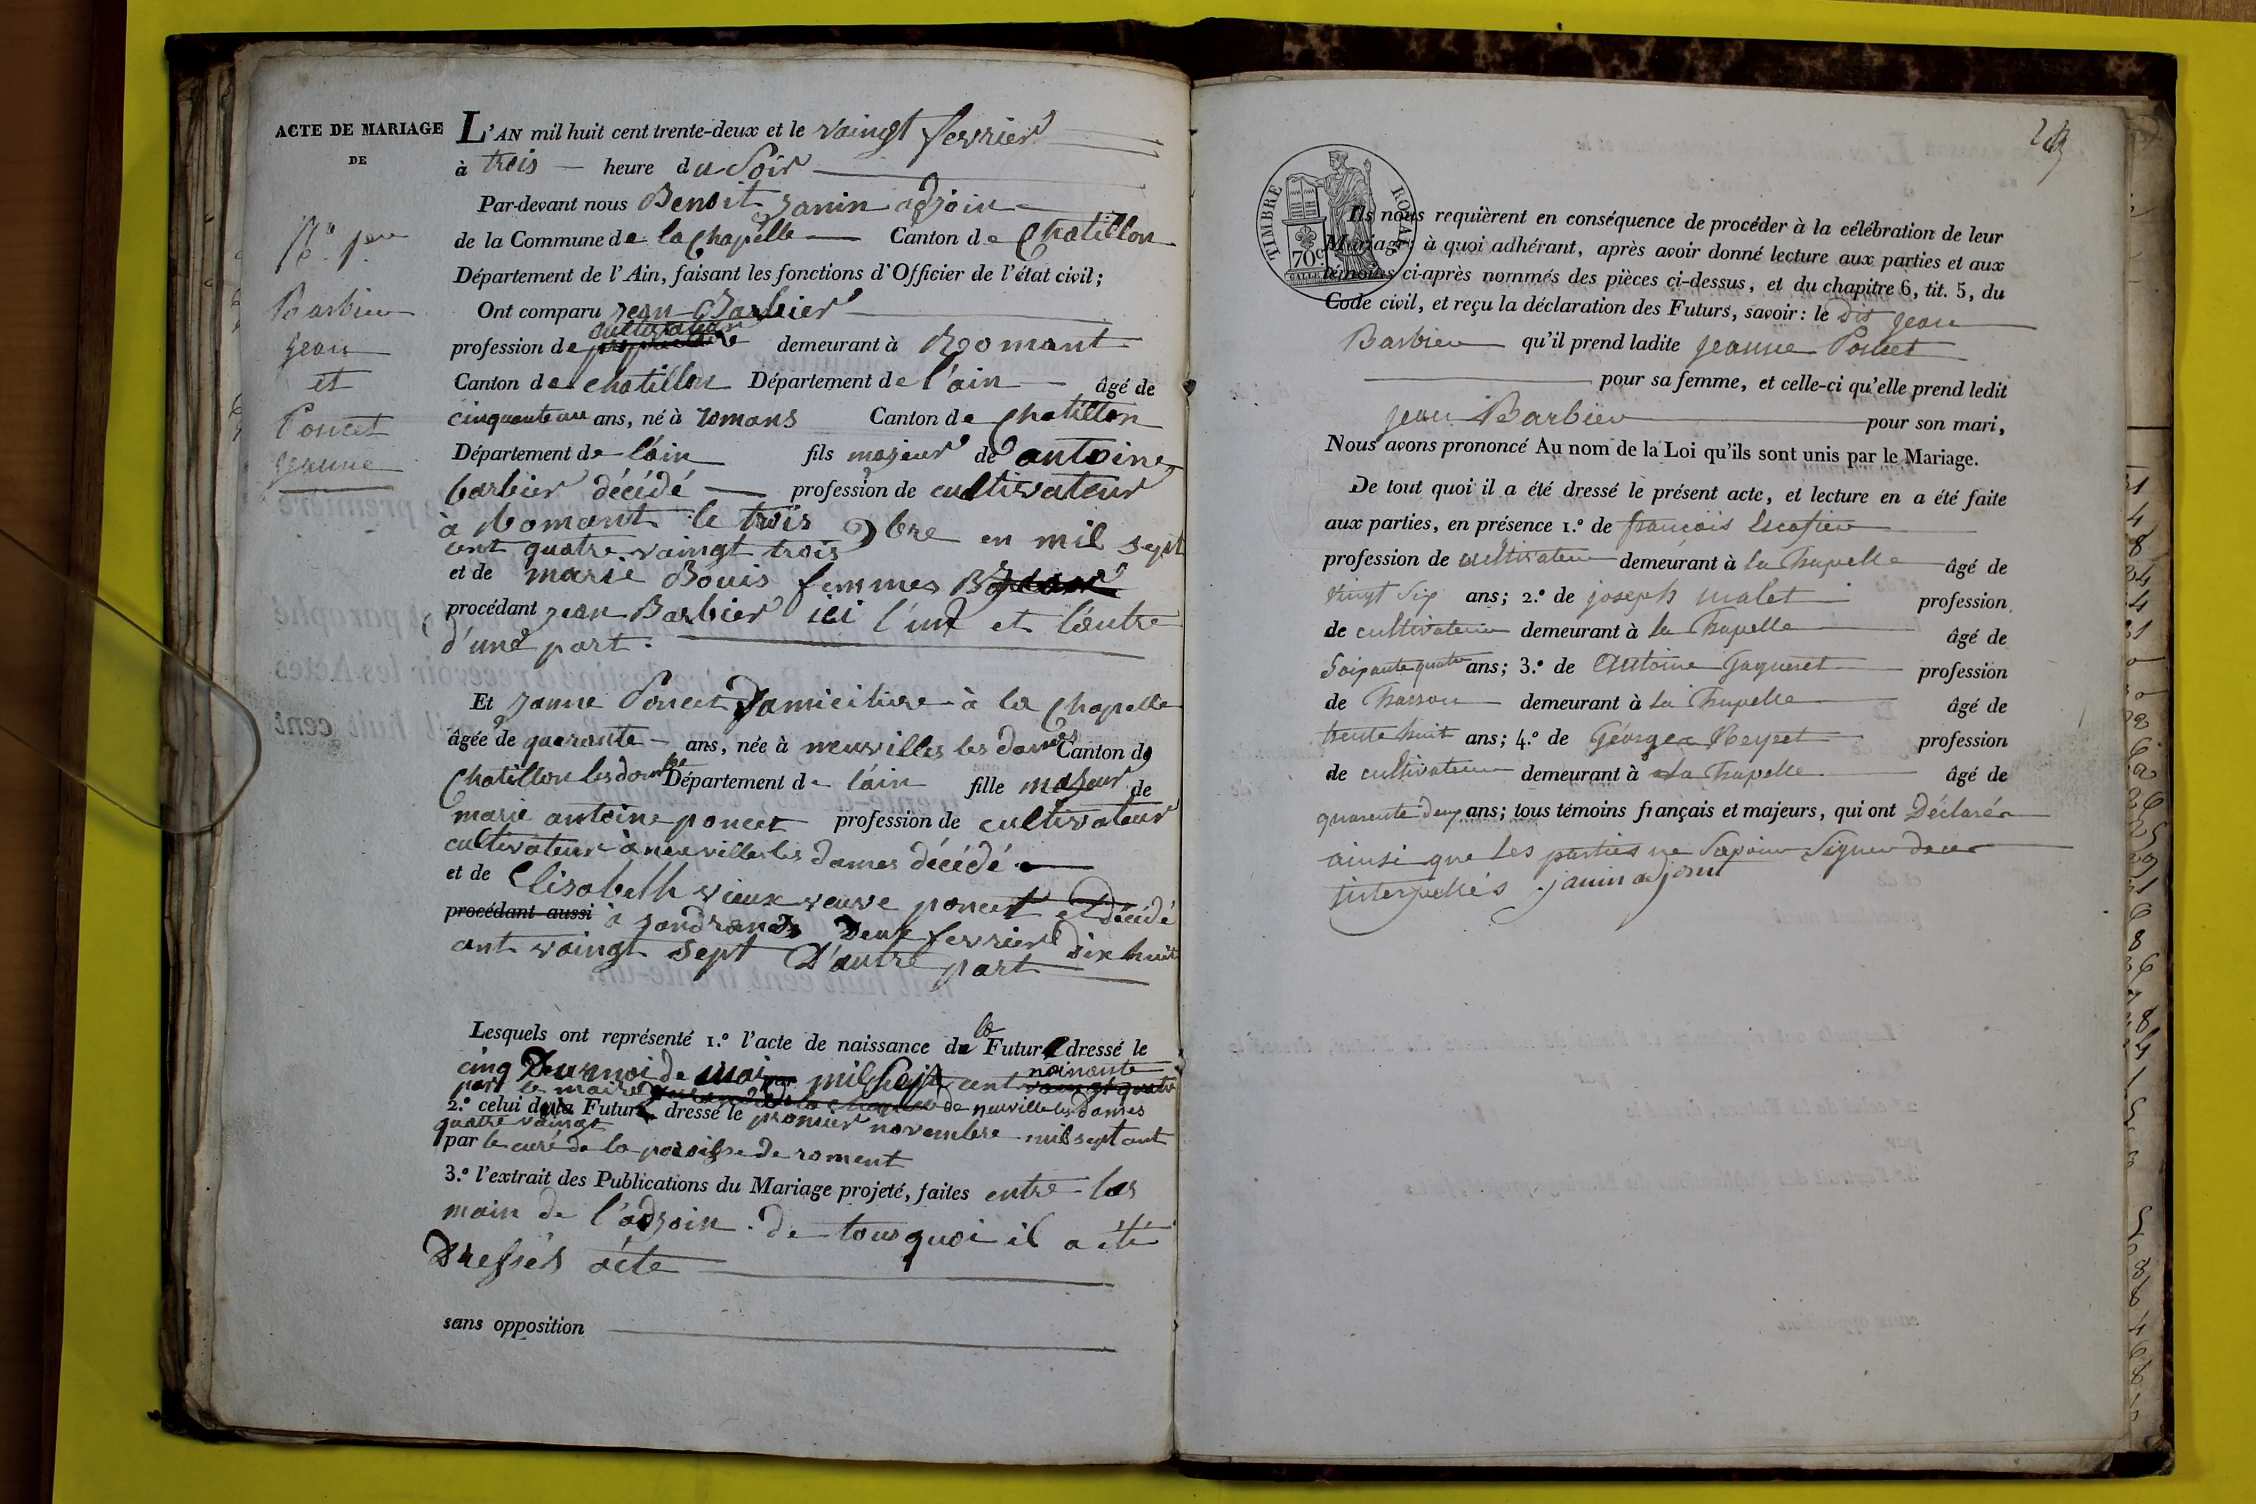 ACTE DE MARIAGE
DE
N.º 1er
Barbier
Jean
et
Poncet
Jeanne
L'AN mil huit cent trente-deux et le vaingt fevrier
à trois heure du Soir
Par-devant nous Benoit Janin adjoin
de la Commune de la Chapelle Canton de Chatillon
Département de l'Ain, faisant les fonctions d'Officier de l'état civil;
Ont comparu jean Barbier
cultivateur
profession de propriétaire demeurant à Romant
Canton de chatillon Département de l'ain âgé de
cinquante un ans, né à romans Canton de Chatillon
Département de l'ain fils majeur de antoine
barbier décédé profession de cultivateur
à Romant le trois 9bre en mil sept
cent quatre vaingt trois
et de marie Bouis femmes
procédant jean Barbier ici l'un et l'autre
d'une part.
Et Janne Poncet Damiciliée à la Chapelle
âgée de quarante ans, née à neuvilles les dames Canton de
Chatillon les dombe Département de l'ain fille majeur de
marie antoine poncet profession de cultivateur
cultivateur à neuvilles les dames décédé
et de Elisabelh vieux veuve poncet et décédé
procédant aussi à Sandrans Deux fevrier dix huit
cent vaingt sept D'autre part
Lesquels ont représenté 1.º l'acte de naissance de la Future dressé le
cinq Du moi de mai mil Sept cent noinante
par le maire de neuville les Dames
2.º celui du Futur dressé le promier novembre mil sept cent
quatre vaingt
par le curé de la paroisse de roment
3.º l'extrait des Publications du Mariage projeté, faites entre les
main de l'adjoin. de tous quoi il a été
Dressés acte
sans opposition
TIMBRE ROYAL
70c
Ils nous requièrent en conséquence de procéder à la célébration de leur
Mariage; à quoi adhérant, après avoir donné lecture aux parties et aux
témoins ci-après nommés des pièces ci-dessus, et du chapitre 6, tit. 5, du
Code civil, et reçu la déclaration des Futurs, savoir: le dit Jean
Barbier qu'il prend ladite Jeanne Poncet
pour sa femme, et celle-ci qu'elle prend ledit
Jean Barbier pour son mari,
Nous avons prononcé Au nom de la Loi qu'ils sont unis par le Mariage.
De tout quoi il a été dressé le présent acte, et lecture en a été faite
aux parties, en présence 1.º de françois Escofier
profession de cultivateur demeurant à la Chapelle âgé de
vingt Six ans; 2.º de joseph malet profession
de cultivateur demeurant à la Chapelle âgé de
Soixante quatre ans; 3.º de Antoine Gagneret profession
de Charron demeurant à la Chapelle âgé de
trente huit ans; 4.º de George Peyret profession
de cultivateur demeurant à la Chapelle âgé de
quarente deux ans; tous témoins français et majeurs, qui ont Déclaré
ainsi que les parties ne Savoir Signer de ce
interpellés Janin adjoint